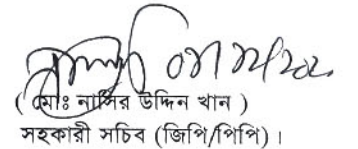 ( মোঃ নাসির উদ্দিন খান )
সহকারী সচিব (জিপি/পিপি)।